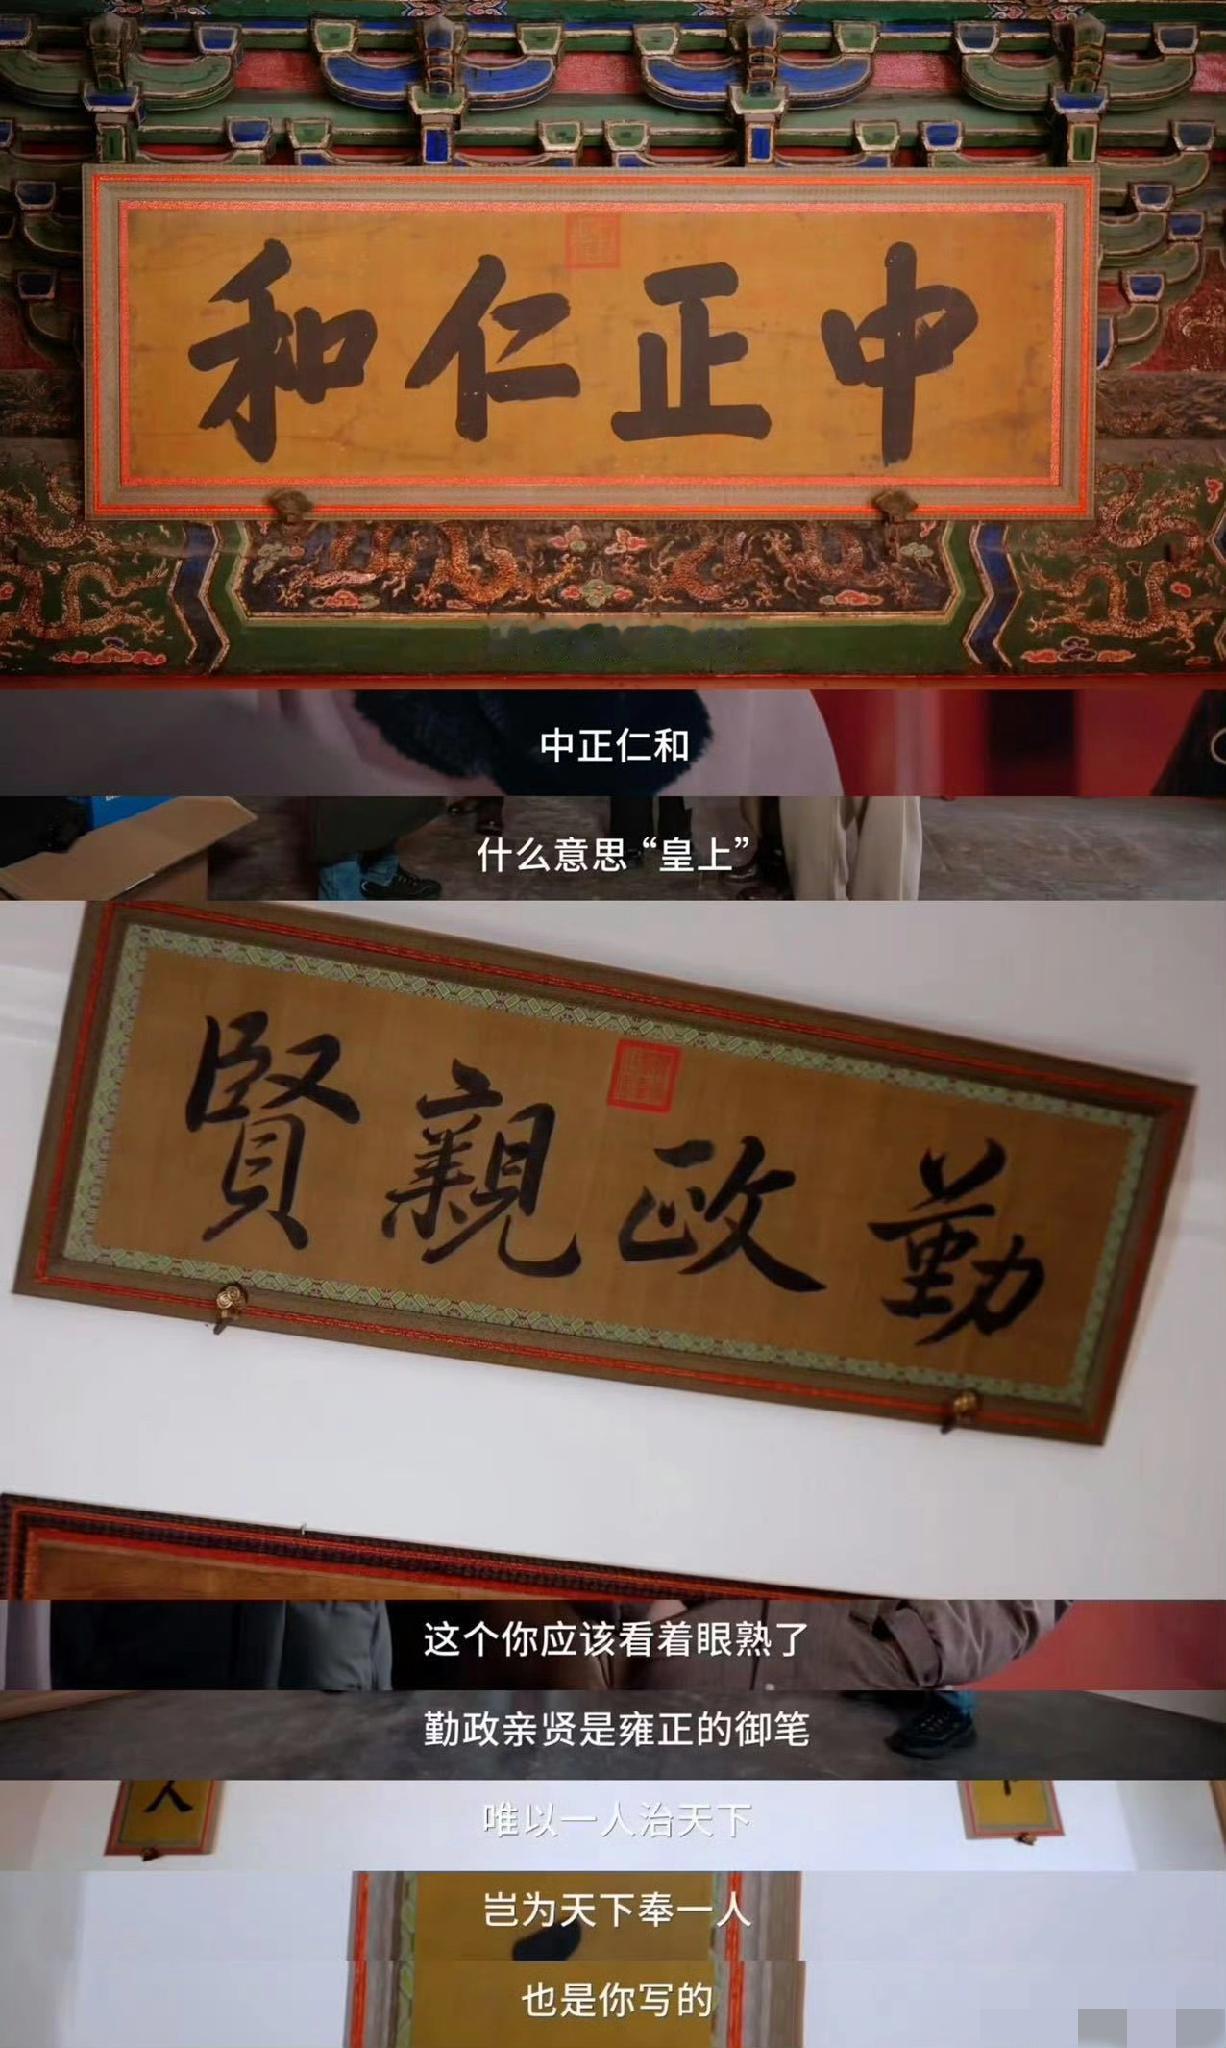 中正仁和
中正仁和
什么意思“皇上”
勤政親賢
这个你应该看着眼熟了
勤政亲贤是雍正的御笔
人
唯以一人治天下
岂为天下奉一人
也是你写的